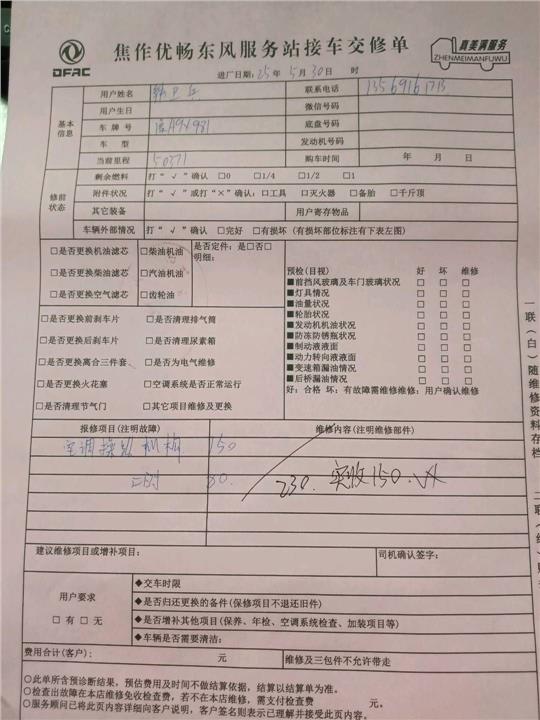 DFAC
焦作优畅东风服务站接车交修单
真美满服务
ZHENMEIMANFUWU
进厂日期: 25年 5月 30日 时
基本信息
用户姓名
联系电话
用户生日 微信号码
车 牌 号 底盘号码
车 型 发动机号码
当前里程 50371 购车时间 年 月 日
修前状态
剩余燃料 打“√”确认 □0 □1/4 □1/2 □1
附件状况 打“√”或打“×”确认: □工具 □灭火器 □备胎 □千斤顶
其它装备 用户寄存物品
车辆外部情况 打“√”确认 □完好 □有损坏 (有损坏部位标注有下表左图)
□是否更换机油滤芯 □柴油机油
□是否更换柴油滤芯 □汽油机油
□是否更换空气滤芯 □齿轮油
是否定件: 是□否□
明细:
□是否更换前刹车片 □是否清理排气筒
□是否更换后刹车片 □是否清理尿素箱
□是否更换离合三件套、 □是否为电气维修
□是否更换火花塞 □空调系统是否正常运行
□是否清理节气门 □其它项目维修及更换
预检(目视) 好 坏 维修
■前挡风玻璃及车门玻璃状况 □ □ □
■灯具情况 □ □ □
■油量状况 □ □ □
■轮胎状况 □ □ □
■发动机机油状况 □ □ □
■防冻防锈瓶状况 □ □ □
■制动液液面 □ □ □
■动力转向液液面 □ □ □
■变速箱漏油情况 □ □ □
■后桥漏油情况 □ □ □
好: 合格 坏: 有故障需维修维修: 用户确认维修
报修项目(注明故障) 维修内容(注明维修部件)
空调 机构 150
工时 80.
230. 实收150.
建议维修项目或增补项目: 司机确认签字:
用户要求
□有 □无
◆交车时限
◆是否归还更换的备件(保修项目不退还旧件)
◆是否增补其他项目(保养、年检、空调系统检查、加装项目等)
◆车辆是否需要清洁:
费用合计(客户): 元 维修及三包件不允许带走
○此单所含预诊断结果，预估费用及时间不做结算依据，结算以结算单为准。
○检查出故障在本店维修免收检查费，若不在本店维修，需支付检查费 元。
○服务顾问已将此页内容详细向客户说明，客户签名则表示已理解并接受此页内容。
一联(白)随维修资料存档